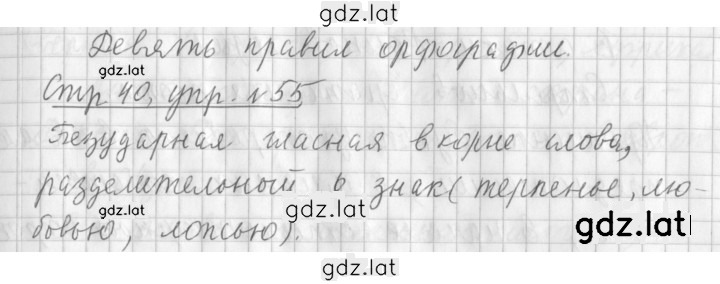 gdz.lat
Девять правил орфографии.
gdz.lat
Стр 40, упр. №55
Безударная гласная в корне слова,
gdz.lat
разделительный ь знак (терпенье, лю-
gdz.lat gdz.lat
бовью, лопсью).
gdz.lat
gdz.lat